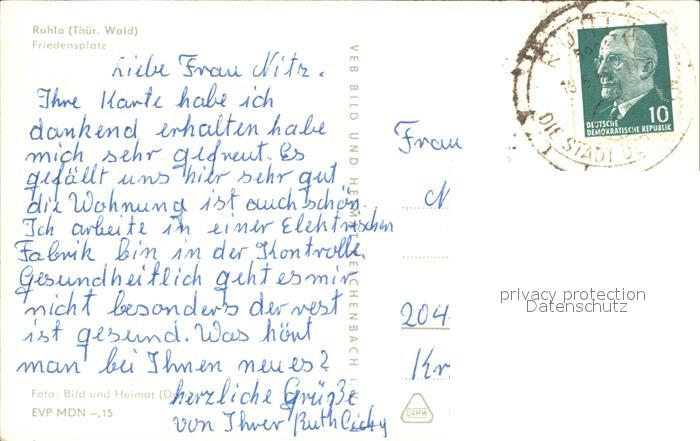 Ruhla (Thür. Wald)
Friedensplatz
Liebe Frau Nitz.
Ihre Karte habe ich
dankend erhalten habe
mich sehr gefreut. Es
gefällt uns hier sehr gut
die Wohnung ist auch schön
Ich arbeite in einer Elektrischen
Fabrik bin in der Kontrolle
Gesundheitlich geht es mir
nicht besonders der rest
ist gesund. Was hört
man bei Ihnen neues?
herzliche Grüße
von Ihrer Ruth
Foto: Bild und Heimat
EVP MDN –,15
VEB BILD UND HEIMAT REICHENBACH i.
DEUTSCHE
DEMOKRATISCHE REPUBLIK
10
RUHLA
DIE STADT DE
Frau
N
204
Kr
DAMW
privacy protection
Datenschutz